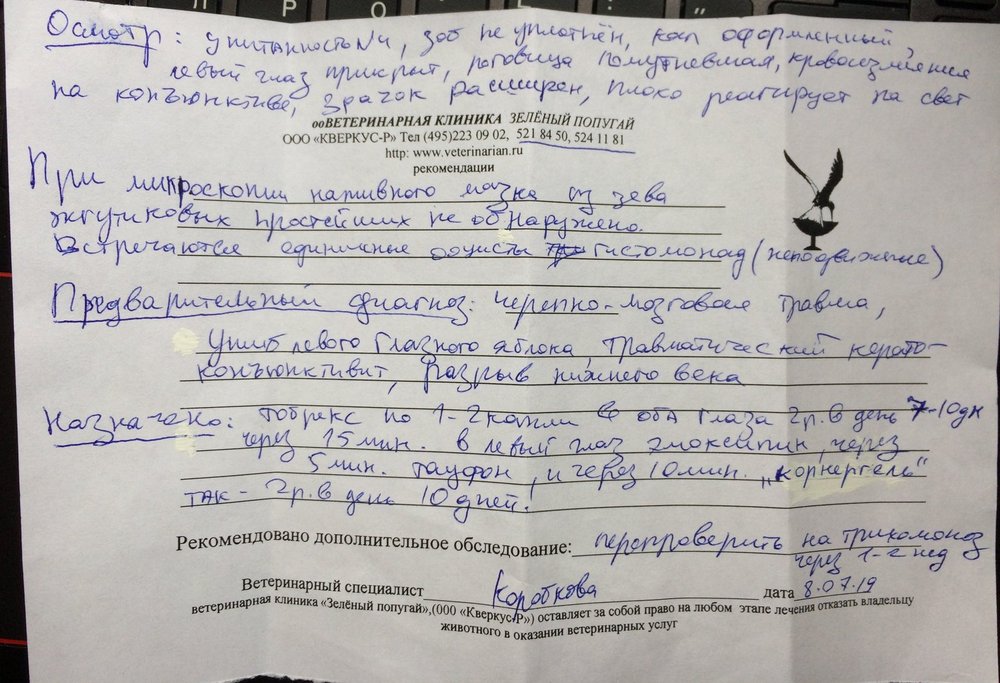 Осмотр: упитанность N4, зоб не уплотнён, кал оформленный,
левый глаз прикрыт, роговица помутневшая, кровоизлияния
на конъюнктиве, зрачок расширен, плохо реагирует на свет
ооВЕТЕРИНАРНАЯ КЛИНИКА ЗЕЛЁНЫЙ ПОПУГАЙ
ООО «КВЕРКУС-Р» Тел (495)223 09 02, 521 84 50, 524 11 81
http: www.veterinarian.ru
рекомендации
При микроскопии нативного мазка из зева
жгутиковых простейших не обнаружено.
Встречаются единичные ооцисты гистомонад (неподвижные)
Предварительный диагноз: черепно-мозговая травма,
ушиб левого глазного яблока, травматический керато-
конъюнктивит, разрыв нижнего века
Назначено: тобрекс по 1-2 капли в оба глаза 2р. в день 7-10 дн
через 15 мин. в левый глаз эмоксипин, через
5 мин. тауфон, и через 10 мин. „корнергель"
так - 2р. в день 10 дней!
Рекомендовано дополнительное обследование: перепроверить на трихомоноз
через 1-2 нед
Ветеринарный специалист Короткова дата 8.07.19
ветеринарная клиника «Зелёный попугай»,(ООО «Кверкус-Р») оставляет за собой право на любом этапе лечения отказать владельцу
животного в оказании ветеринарных услуг